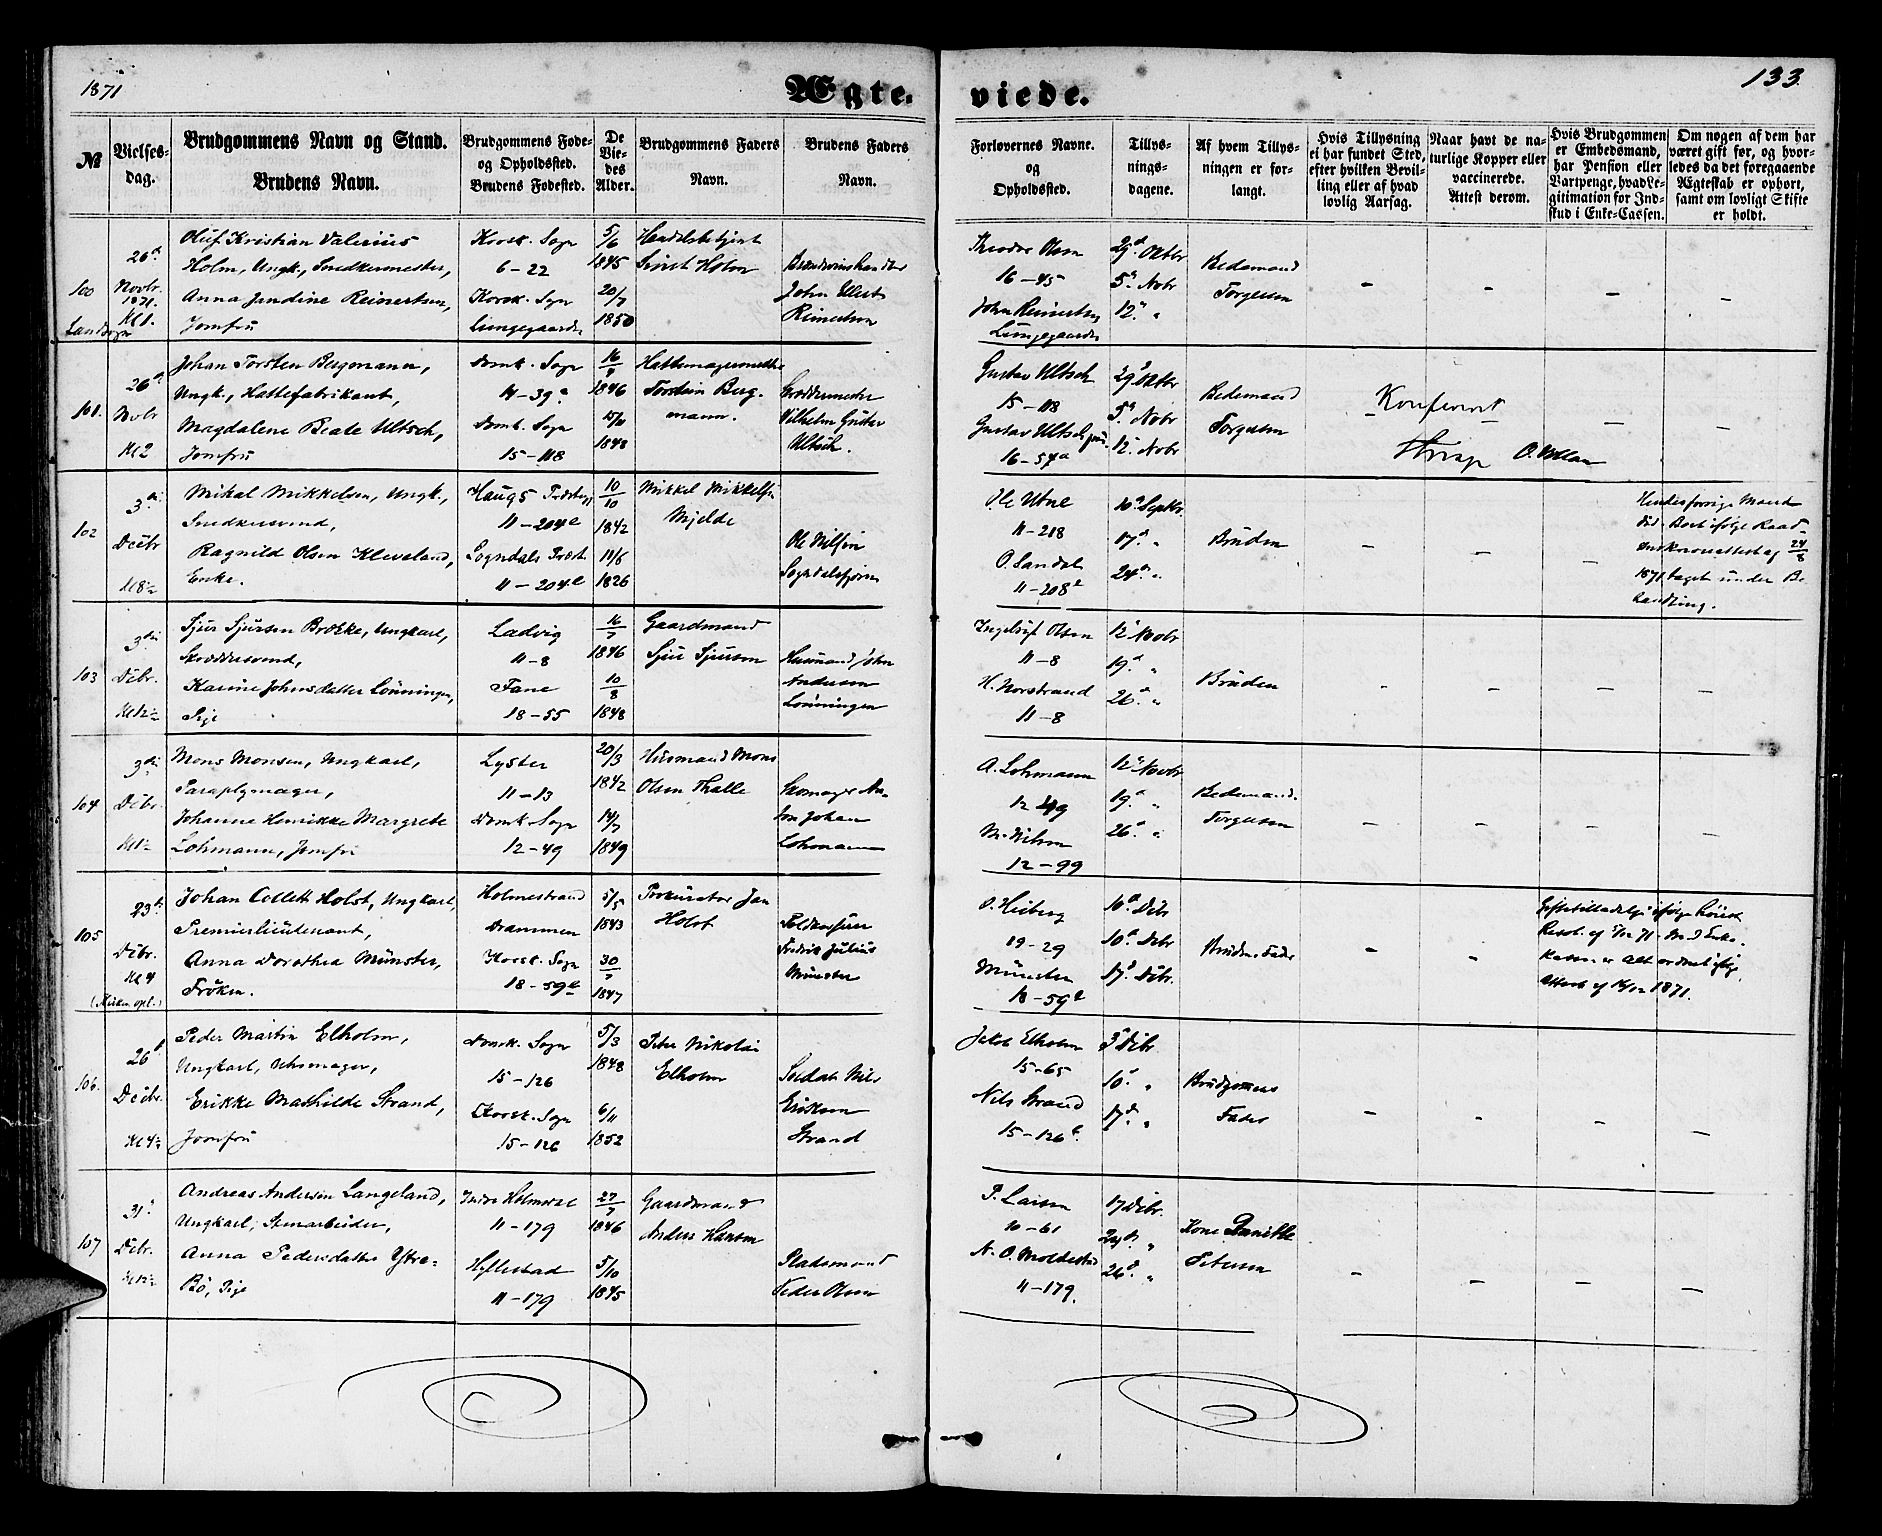 1871
Ægte.
viede.
133.
№
Vielses-
dag.
Brudgommens Navn og Stand.
Brudens Navn.
Brudgommens Føde-
og Opholdssted.
Brudens Fødested.
De
Vie-
des
Alder.
Brudgommens Faders
Navn.
Brudens Faders
Navn.
Forlovernes Navne.
og
Opholdssted.
Tillys-
nings-
dagene.
Af hvem Tillys-
ningen er for-
langt.
Hvis Tillysning
ei har fundet Sted,
efter hvilken Bevil-
ling eller af hvad
lovlig Aarsag.
Naar havt de na-
turlige Kopper eller
vaccinerede.
Attest derom.
Hvis Brudgommen
er Embedsmand,
har Pension eller
Vartpenge, hvad Le-
gitimation for Ind-
skud i Enke-Cassen.
Om nogen af dem har
været gift før, og hvor-
ledes da det foregaaende
Ægteskab er ophørt,
samt om lovligt Skifte
er holdt.
100
Landsogn
26de
Novbr.
1871.
Kl 1.
Oluf Kristian Valerius
Holm, Ungk., Snedkermester,
Anna Jendine Reinertsen,
Jomfru
Korsk. Sogn
6-22
Korsk. Sogn
Lungegaarden
5/6
1845
20/7
1850
Handelsbetjent
Holm
Brændevinshandler
John Ellert
Reinertsen
Theodor Olsen
16-45
John Reinertsen
Lungegaarden
29de Oktbr
5te Novbr
12te "
Bedemand
Torgersen
101.
26de
Novbr
Kl 2
Johan Torsten Bergmann,
Ungk., Hattefabrikant,
Magdalene Beate Ultsch,
Jomfru
Domk. Sogn
14-39a
Domk. Sogn
15-118
16/7
1846
1848
Hattemagermester
Torstein Berg-
mann.
Skræddermester
Vilhelm Gustav
Ultsch.
Gustav Ultsch
15-118
Gustav Ultsch jun.
16-57a
29de Oktbr
5te Novbr
12. Novbr
Bedemand
Torgersen
Konfereret
102
3die
Decbr
Mikal Mikkelsen, Ungk.,
Snedkersvend,
Ragnild Olsen Kleveland,
Enke.
Haugs Præstegj
11-204e
Sogndals Præst.
11-204e
10/10
1842
11/6
1826
Mikkel Mikkelsen
Mjelde
Ole Nilsen
Sogndalsfjøren
Ole Utne
11-218
O. Sandal
11-208e
10de Septbr.
17de "
24de "
Bruden
Hendes forrige Mand
død. Boet ifølge Raad-
stueskriverattest af 24/8
1871 taget under Be-
handling.
103
3die
Decbr.
Sjur Sjursen Brække, Ungkarl,
Skræddersvend,
Karine Johnsdatter Lønningen,
Pige
Ladvig
11-8
Fane
18-55
16/7
1846
10/8
1848
Gaardmand
Sjur Sjursen
Husmand John
Andersen
Lønningen
Ingebrigt Olsen
11-8
H. Norstrand
11-8
12te Novbr
19de "
26de "
Bruden
104
3die
Decbr.
Mons Monsen, Ungkarl,
Paraplymager,
Johanne Henrikke Margrete
Lohmann, Jomfru
Lyster
11-13
Domk. Sogn
12-49
20/3
1842
14/7
1849
Husmand Mons
Olsen Thalle
Skomager An-
ton Johan
Lohmann
A. Lohmann
12-49
M. Nilsen
12-99
12te Novbr
19de "
26de "
Bedemand
Torgersen
105
23de
Decbr.
Kl 4
Johan Collett Holst, Ungkarl,
Premierlieutenant,
Anna Dorothea Münster,
Frøken.
Holmestrand
Drammen
Korsk. Sogn
18-59a
5/5
1843
30/7
1847
Prokurator Jan
Holst
Toldkasserer
Fredrik Julius
Münster
O. Heiberg
19-29
Münster
18-59a
10de Decbr
17de Decbr.
Brudens Fader
Giftetilladelse ifølge høieste
Resol. af 5/12 71. M. H. Enke-
Kassen er Alt ordnet ifølge
Attest af 14/12 1871.
106.
26de
Decbr.
Peder Martin Elholm,
Ungkarl, Uhrmager,
Erikke Mathilde Strand,
Jomfru
Domk. Sogn
15-126
Korsk. Sogn
15-126
5/3
1848
6/11
1852
Peter Nikolai
Elholm
Soldat Nils
Eriksen
Strand
Jakob Elholm
15-65
Nils Strand
15-126b.
3de Decbr
10de "
17de "
Brudgommens
Fader
107
31te
Decbr.
Andreas Andersen Langeland,
Ungkarl, Stenarbeider,
Anna Pedersdatter Ystre-
Bø, Pige
Indre Holmedal
11-179
Hyllestad
11-179
27/7
1846
5/10
1845
Gaardmand
Anders Hansen
Pladsmand
Peder Olsen
P. Larsen
10-61
N. O. Moldestad
11-179.
17 Decbr.
24de "
26de "
Kone Danielle
Petersen